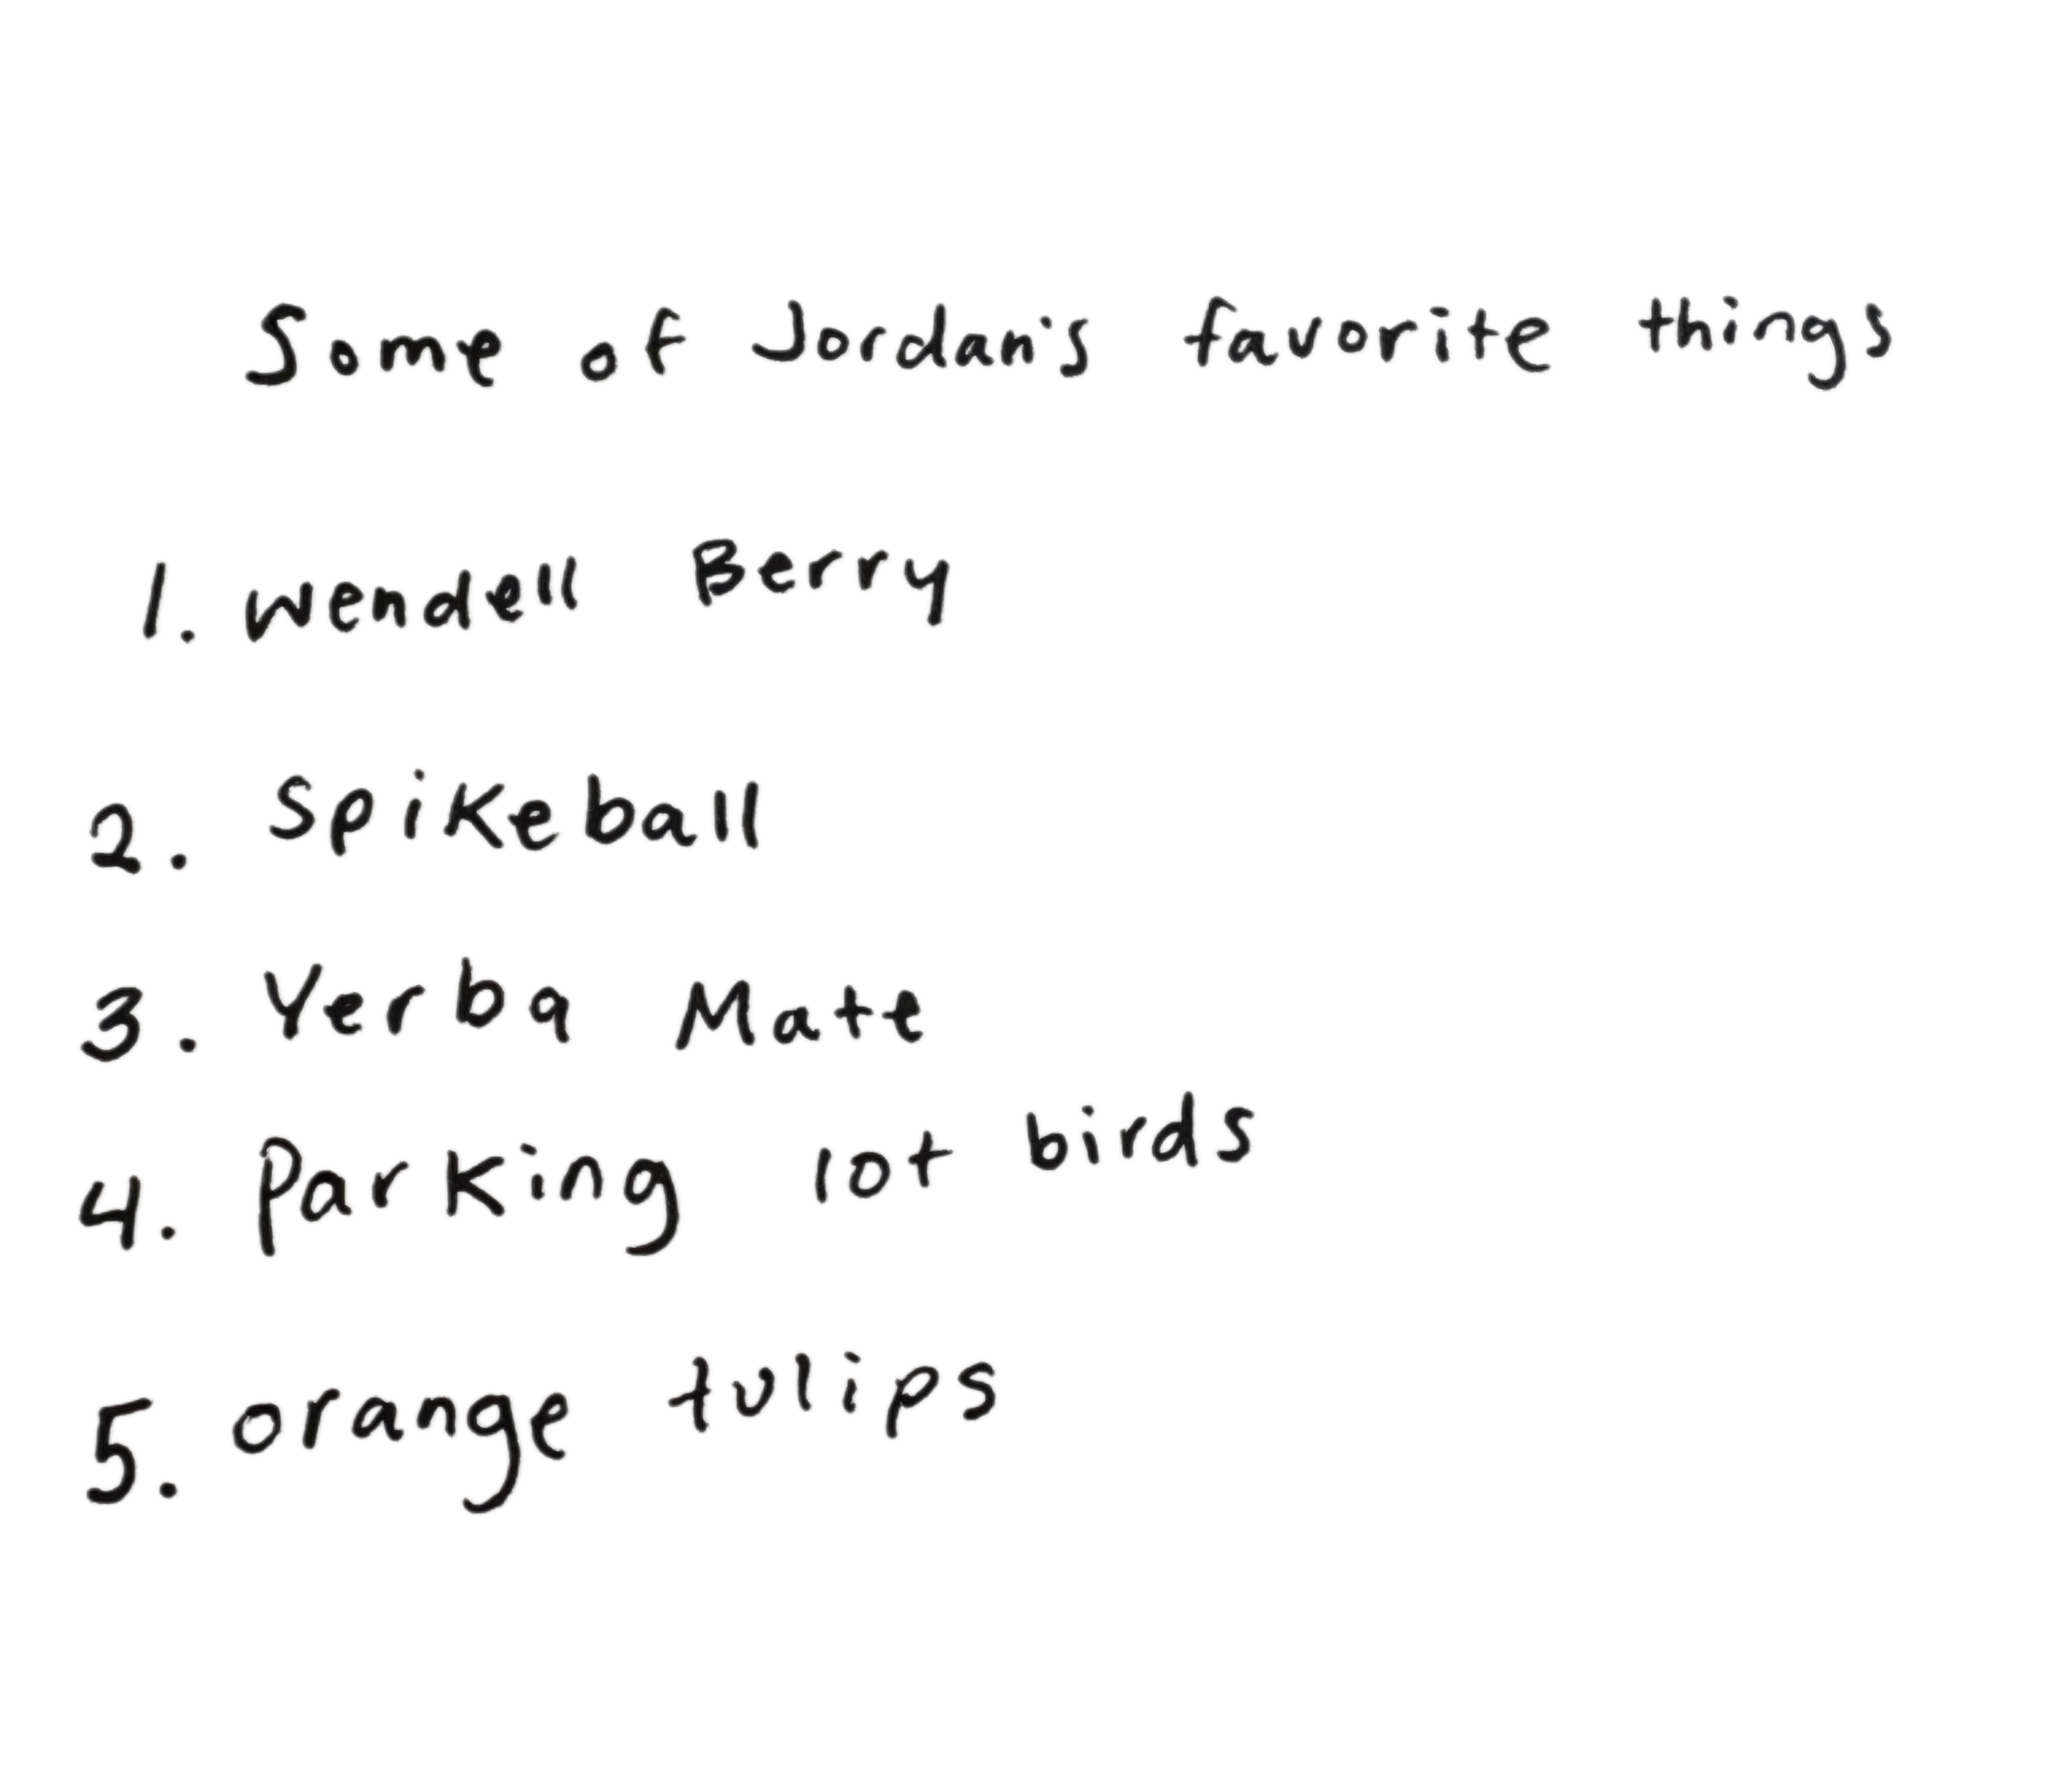 Some of Jordan's favorite things
1. Wendell Berry
2. Spikeball
3. Yerba Mate
4. Parking lot birds
5. orange tulips